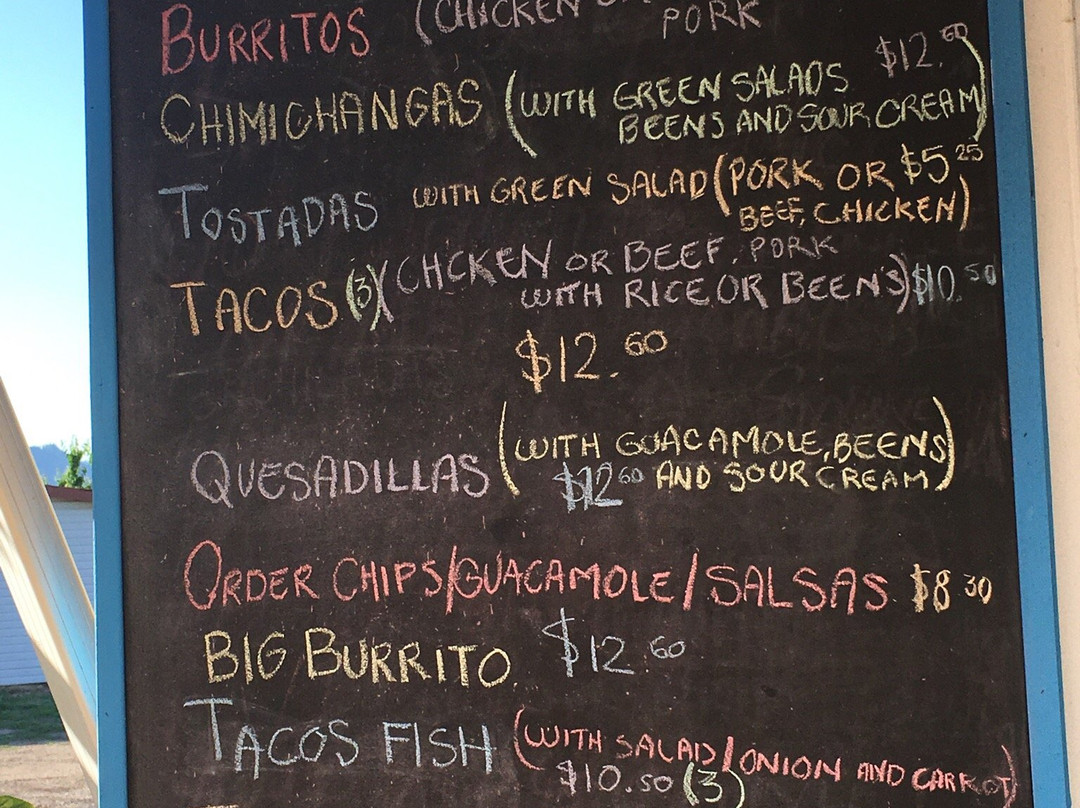 BURRITOS (CHICKEN
PORK
$12.60
CHIMICHANGAS (WITH GREEN SALADS
BEENS AND SOUR CREAM)
TOSTADAS WITH GREEN SALAD (PORK OR $5 25
BEEF, CHICKEN)
TACOS (3) (CHCKEN OR BEEF, PORK
WITH RICE OR BEEN'S) $10.50
$12.60
QUESADILLAS (WITH GUACAMOLE, BEENS
$12 60 AND SOUR CREAM)
ORDER CHIPS/GUACAMOLE/SALSAS $8 30
BIG BURRITO $12.60
TACOS FISH (WITH SALAD/ONION AND CARROT)
$10.50 (3)